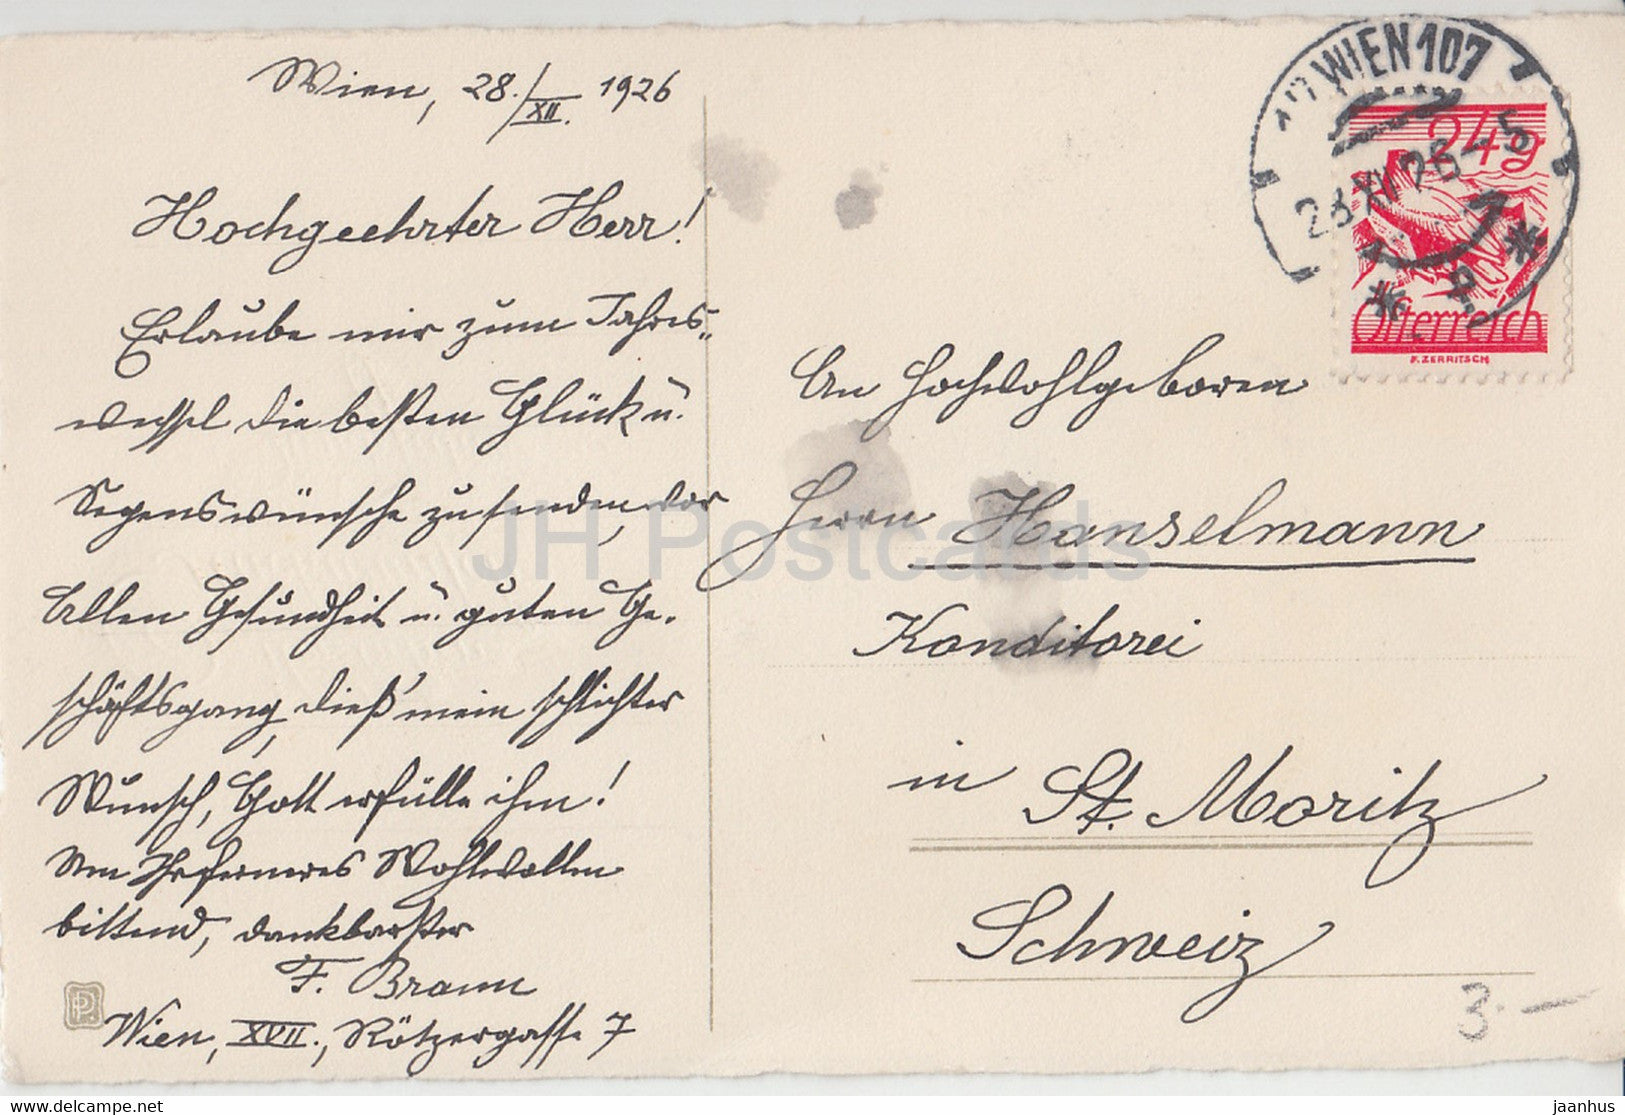 Wien, 28./XII. 1926
Hochgeehrter Herr!
Erlaube mir zum Jahres-
wechsel die besten Glück u.
Segenswünsche zu senden, vor
Allen Gesundheit u. guten Ge-
schäftsgang, dieß mein schlichter
Wunsch, Gott erfülle ihn!
Um Ihr ferneres Wohlwollen
bittend, dankbarster
F. Braun
Wien, XVII., Rötzergasse 7
WIEN 107
28 XII 26 - 5
24g
Österreich
F. ZERRITSCH
An Hochwohlgeboren
Herrn Hanselmann
Konditorei
in St. Moritz
Schweiz
3.-
JH Postcards
www.delcampe.net
jaanhus